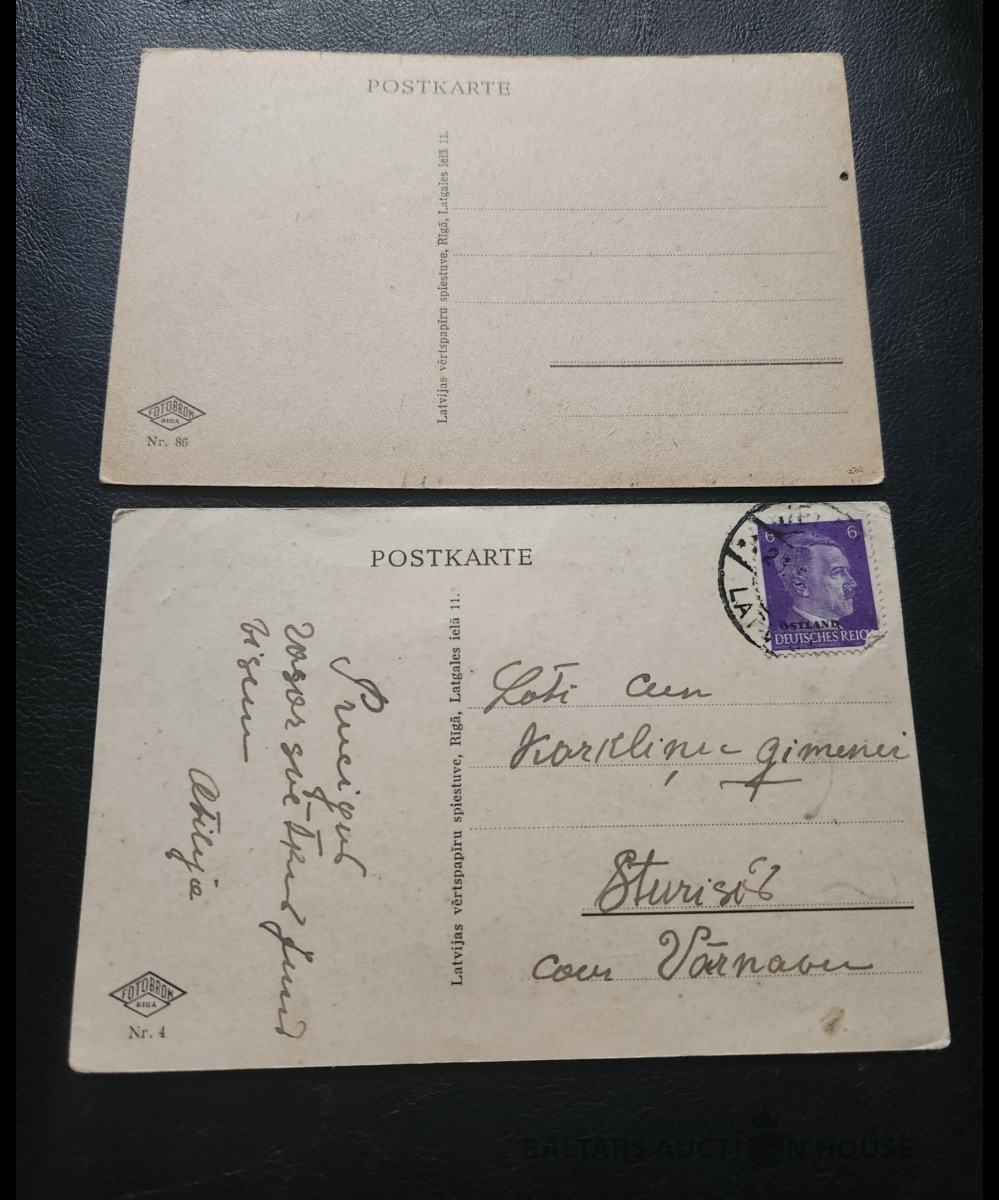 POSTKARTE
Latvijas vērtspapīru spiestuve, Rīgā, Latgales ielā 11.
FOTOBROM
RIGA
Nr. 86
POSTKARTE
6 6
OSTLAND
DEUTSCHES REICH
LATV
Latvijas vērtspapīru spiestuve, Rīgā, Latgales ielā 11.
Priecīgus
vasarsvētkus Jums
visiem
Otilija
Loti un
Karkliņu ģimenei
Sturisós
caur Vārnavu
FOTOBROM
RIGA
Nr. 4
BALTARS AUCTION HOUSE